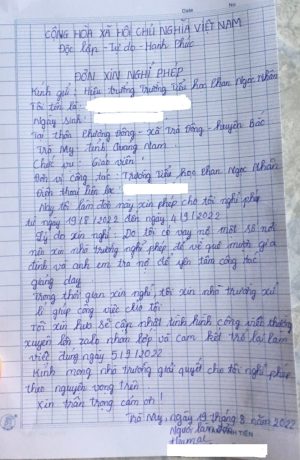 Date No
CỘNG HÒA XÃ HỘI CHỦ NGHĨA VIỆT NAM
Độc lập - Tự do - Hạnh Phúc
ĐƠN XIN NGHỈ PHÉP
Kính gửi: Hiệu trưởng Trường Tiểu học Phan Ngọc Nhân
Tôi tên là:
Ngày sinh:
Tại thôn Phương Đông - xã Trà Đông - huyện Bắc
Trà My - tỉnh Quảng Nam.
Chức vụ: Giáo viên
Đơn vị công tác: Trường Tiểu học Phan Ngọc Nhân
Điện thoại liên lạc:
Nay tôi làm đơn này xin phép cho tôi nghỉ phép
từ ngày 19/8/2022 đến ngày 4/9/2022
Lý do xin nghỉ: Do tôi có vay nợ một số nơi
nên xin nhà trường nghỉ phép để về quê mượn gia
đình và anh em trả nợ để yên tâm công tác
giảng dạy
Trong thời gian xin nghỉ, tôi xin nhà trường xử
lí giúp công việc cho tôi
Tôi xin hứa sẽ cập nhật tình hình công việc thường
xuyên lên zalo nhóm lớp và cam kết trở lại làm
việc đúng ngày 5/9/2022
Kính mong nhà trường giải quyết cho tôi nghỉ phép
theo nguyện vọng trên
Xin trân trọng cảm ơn!
Trà My, ngày 19 tháng 8 năm 2022
Người làm đơn